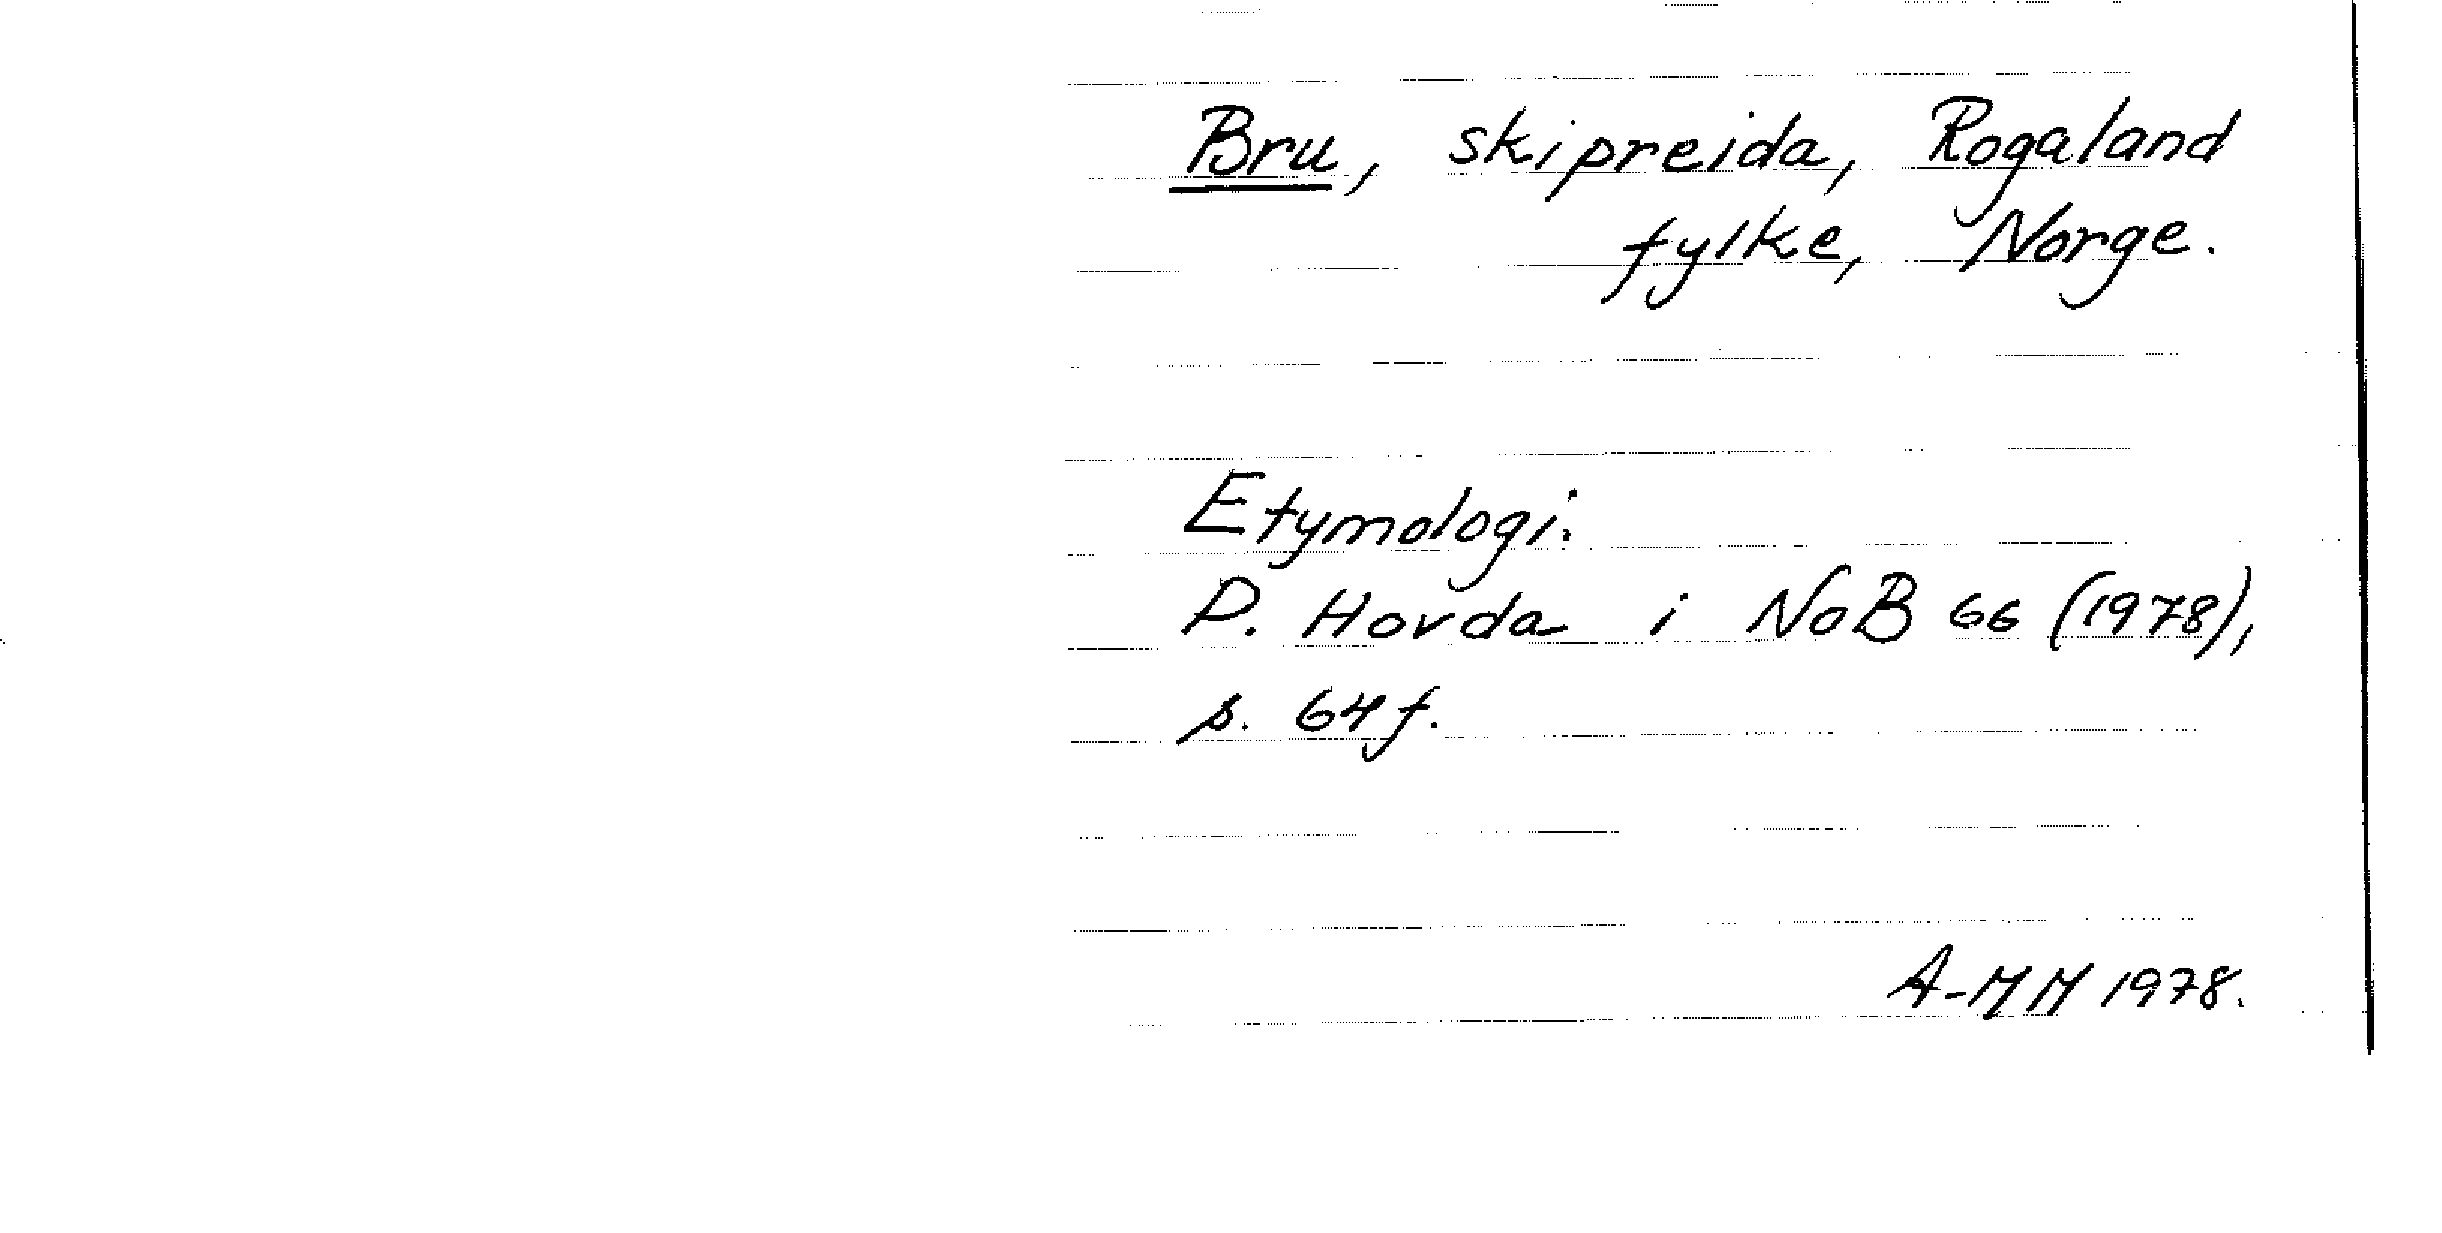 Bru, skipreida, Rogaland
fylke, Norge.
Etymologi:
P. Hovda i NoB 66 (1978),
s. 64f.
A-MM 1978.